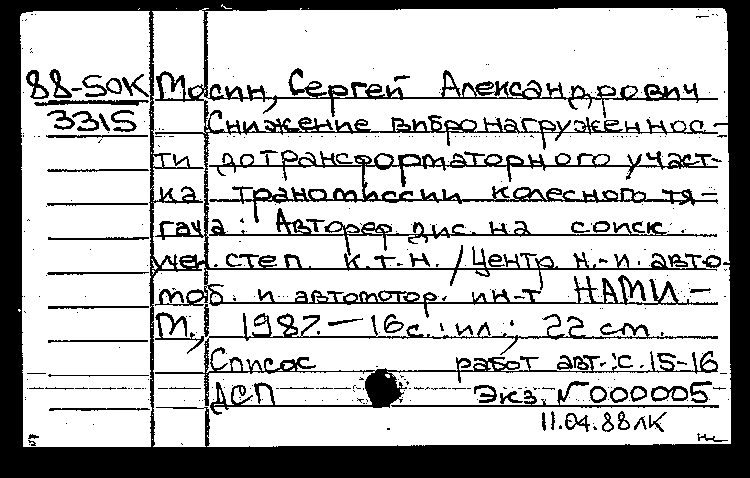 88-5ОК Мосин, Сергей Александрович
3315 Снижение вибронагруженнос-
ти дотрансформаторного участ-
ка трансмиссии колесного тя-
гача: Автореф. дис. на соиск.
учен. степ. к.т.н. / Центр. н.-и. авто-
моб. и автомотор. ин-т НАМИ. -
М., 1987. - 16 с.: ил.; 22 cm.
Список работ авт.: с. 15-16
ДСП Экз. № 000005
11.04.88 ЛК